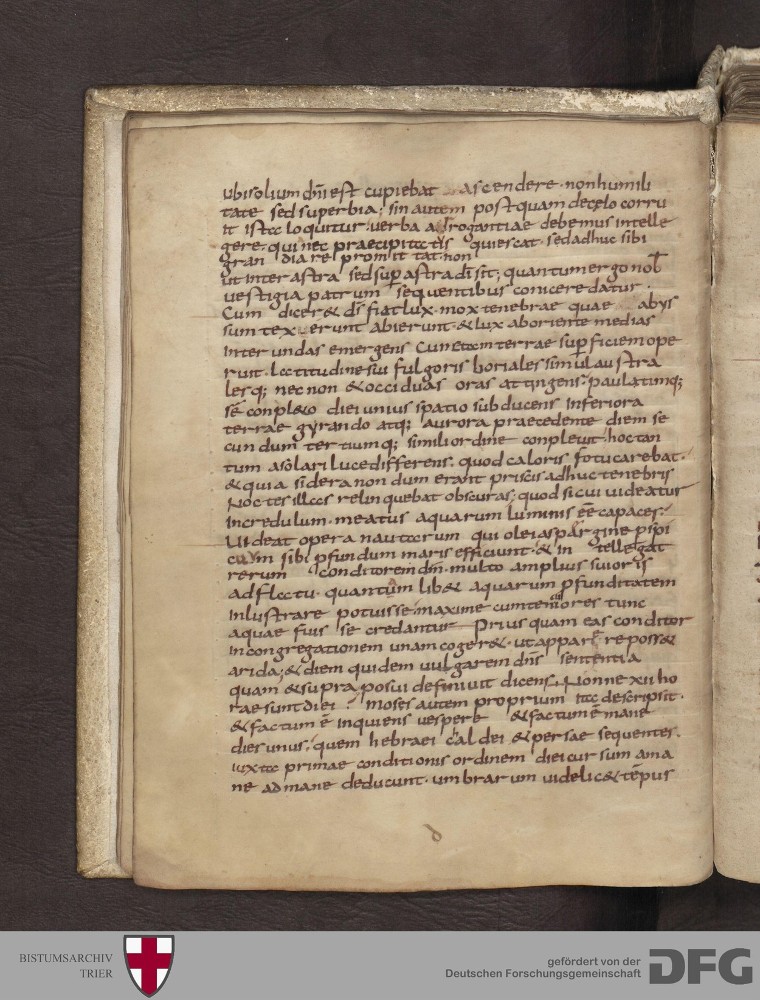 ubi solium dn̄i est cupiebat ascendere. non humili
tate sed superbia; sin autem postquam de celo corru
it ista loquitur. verba arrogantiae debemus intelle
gere. qui nec praecipitatus quiescat. sed adhuc sibi
grandia repromittat. non
ut inter astra sed sup astra dī sit; quantum ergo nob
vestigia patrum sequentibus conicere datur.
Cum dicer& dī fiat lux. mox tenebrae quae abys
sum tex erunt abierunt. & lux ab oriente medias
inter undas emergens cunctam terrae sup ficiem ope
ruit. latitudine sui fulgoris boriales simul austra
lesq; necnon & occiduas oras attingens. paulatimq;
sē conpl&o diei unius spatio subducens inferiora
terrae gyrando atq; aurora praecedente diem se
cundum tertiumq; simili ordine conplevit. hoc tan
tum a solari luce differens. quod caloris fotu carebat.
& quia sidera nondum erant priscis adhuc tenebris
Noctes illas relinquebat obscuras; quod si cui videatur
incredulum. meatus aquarum luminis eē capaces.
Videat opera nautarum qui olei aspargine pspi
cuum sibi pfundum maris efficiunt. & intellegat
rerum conditorem dm̄. multo amplius sui oris
adflatu. quantum lib& aquarum pfunditatem
inlustrare potuisse. maxime cum tenuiores tunc
aquae fuisse credantur Prius quam eas conditor
in congregationem unam coger&. ut apparere poss&
arida; & diem quidem vulgarem dn̄s sententia
quam & supra posui definivit dicens. Nonne xii ho
rae sunt diei? Moses autem proprium ita descripsit.
& factum ē inquiens vespere & factum ē mane
dies unus. quem hebraei caldei & persae sequentes.
iuxta primae conditionis ordinem diei cursum a ma
ne ad mane deducunt. umbrarum videlic& tēpus
BISTUMSARCHIV
TRIER
gefördert von der
Deutschen Forschungsgemeinschaft
DFG